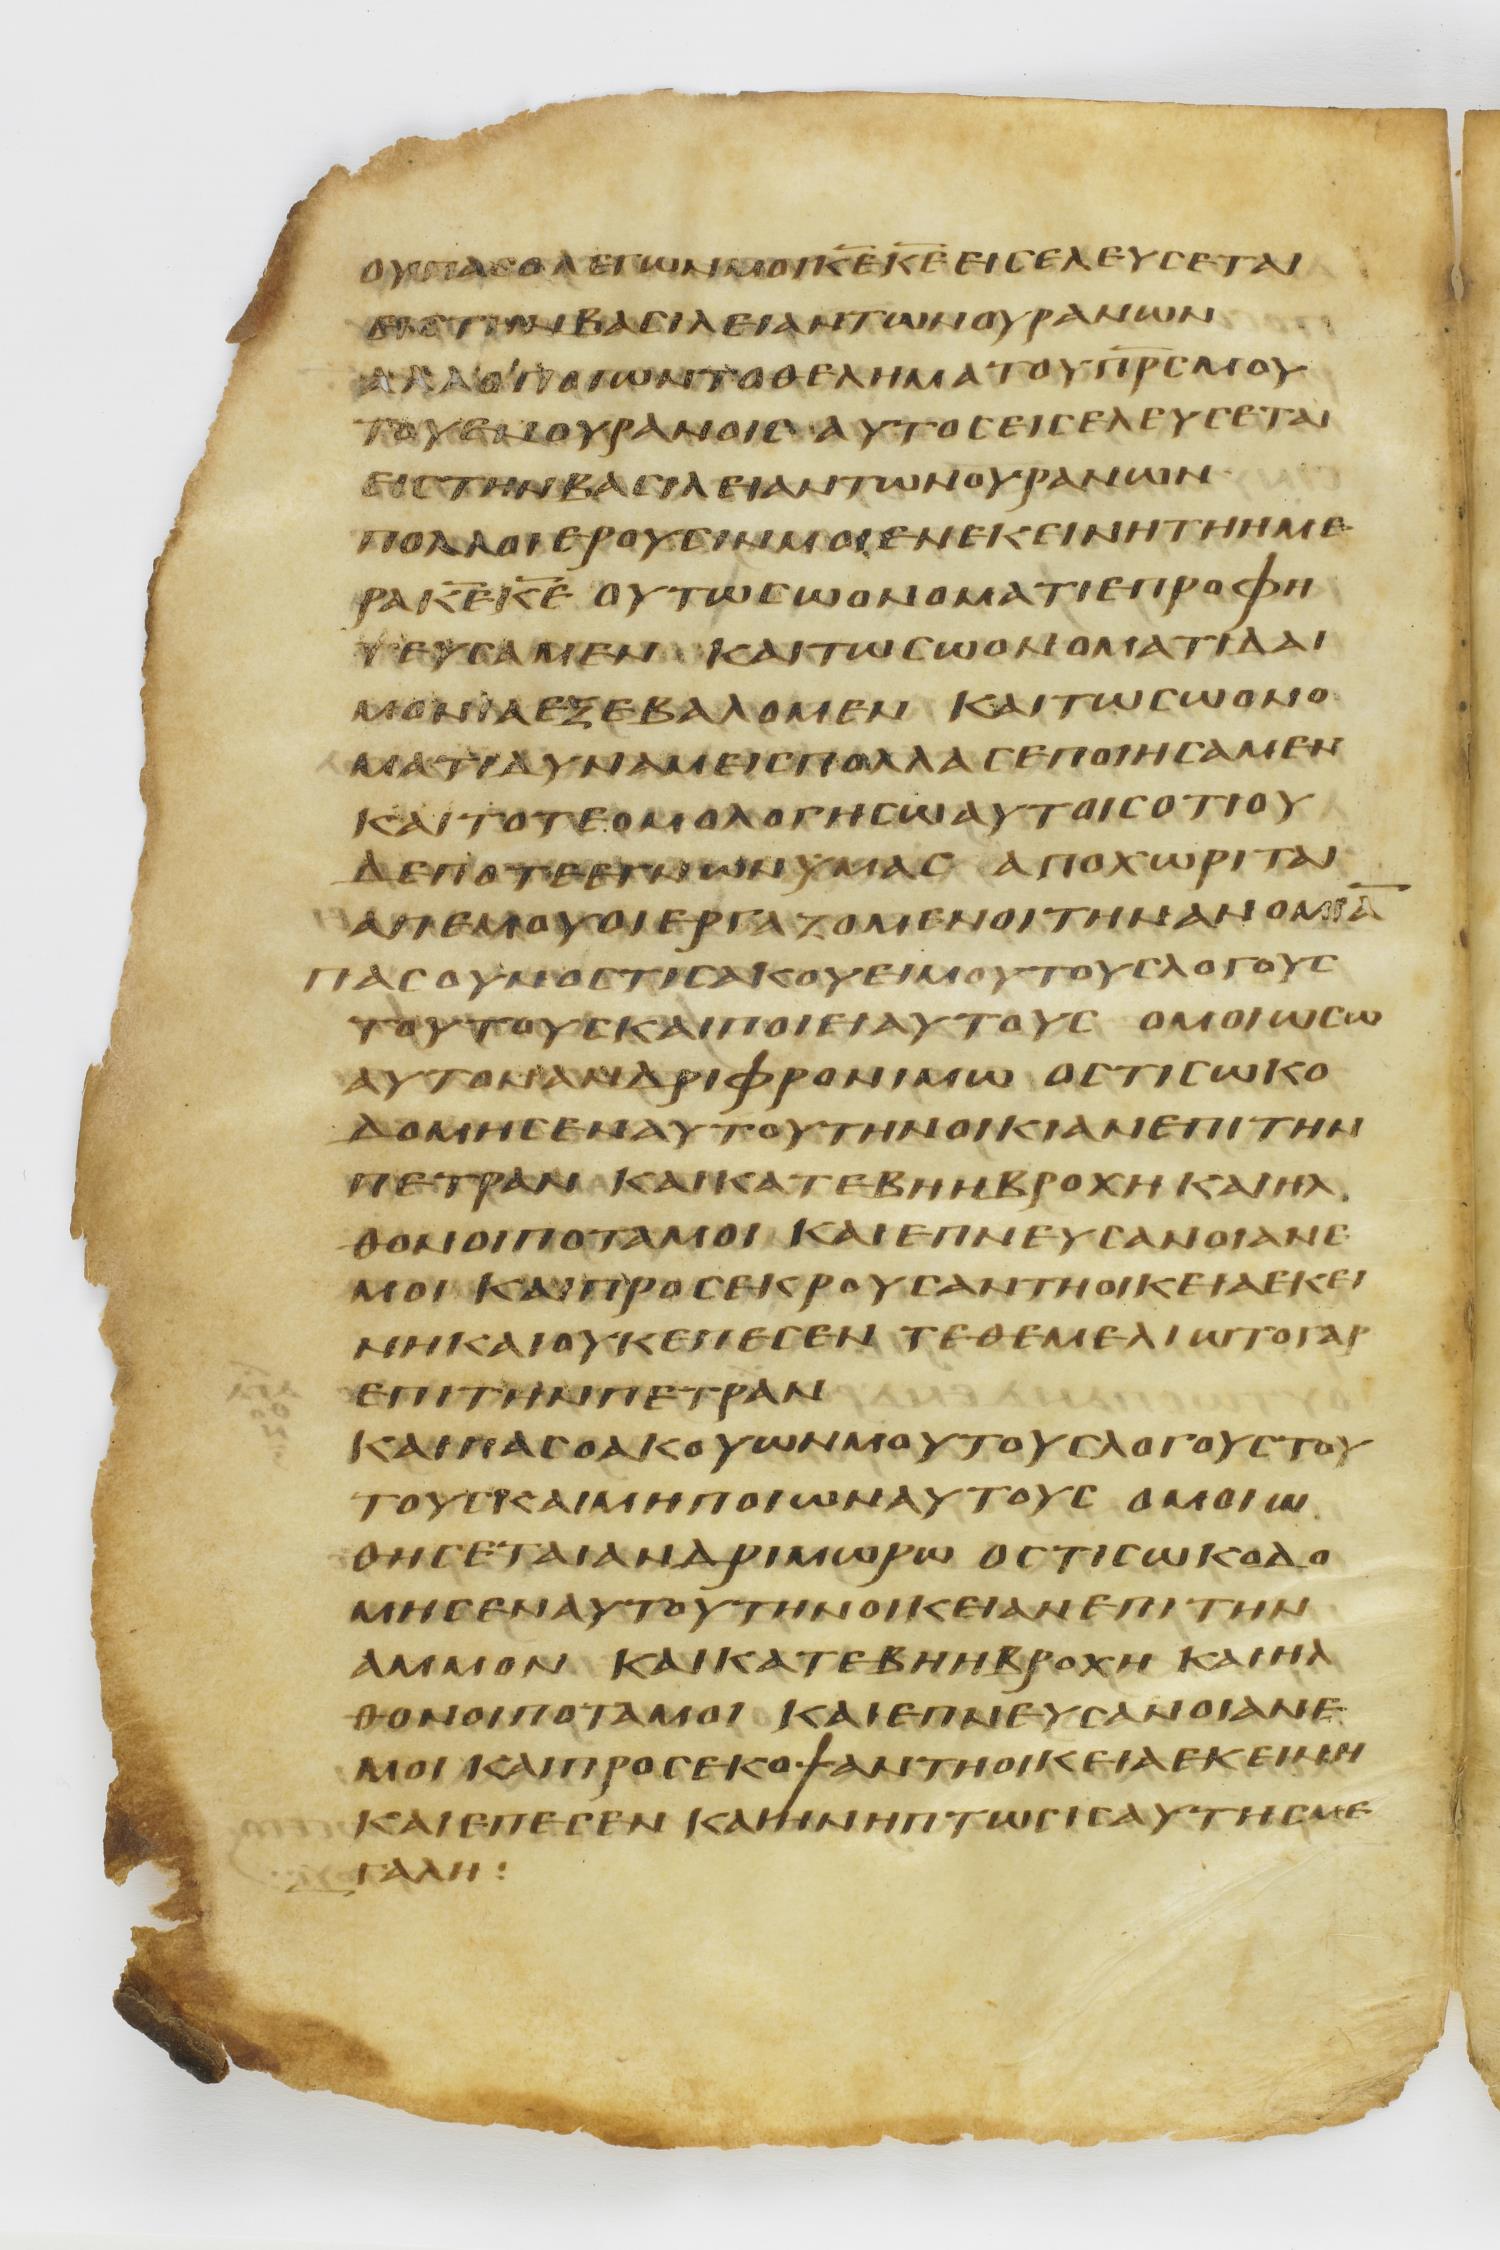 ΟΥΠΑСΟΛΕΓΩΝΜΟΙΚ̅Ε̅Κ̅Ε̅ΕΙСΕΛΕΥСΕΤΑΙ
ΕΙСΤΗΝΒΑСΙΛΕΙΑΝΤΩΝΟΥΡΑΝΩΝ
ΑΛΛΟΠΟΙΩΝΤΟΘΕΛΗΜΑΤΟΥΠ̅Ρ̅С̅ΜΟΥ
ΤΟΥΕΝΟΥΡΑΝΟΙС ΑΥΤΟСΕΙСΕΛΕΥСΕΤΑΙ
ΕΙСΤΗΝΒΑСΙΛΕΙΑΝΤΩΝΟΥΡΑΝΩΝ
ΠΟΛΛΟΙΕΡΟΥСΙΝΜΟΙΕΝΕΚΕΙΝΗΤΗΗΜΕ
ΡΑΚ̅Ε̅Κ̅Ε̅ ΟΥΤΩСΩΟΝΟΜΑΤΙΕΠΡΟΦΗ
ΤΕΥСΑΜΕΝ ΚΑΙΤΩСΩΟΝΟΜΑΤΙΔΑΙ
ΜΟΝΙΑΕΞΕΒΑΛΟΜΕΝ ΚΑΙΤΩСΩΟΝΟ
ΜΑΤΙΔΥΝΑΜΕΙСΠΟΛΛΑСΕΠΟΙΗСΑΜΕΝ
ΚΑΙΤΟΤΕΟΜΟΛΟΓΗСΩΑΥΤΟΙСΟΤΙΟΥ
ΔΕΠΟΤΕΕΓΝΩΝΥΜΑС ΑΠΟΧΩΡΙΤΑΙ
ΑΠΕΜΟΥΟΙΕΡΓΑΖΟΜΕΝΟΙΤΗΝΑΝΟΜΙΑ̅
ΠΑСΟΥΝΟСΤΙСΑΚΟΥΕΙΜΟΥΤΟΥСΛΟΓΟΥС
ΤΟΥΤΟΥСΚΑΙΠΟΙΕΙΑΥΤΟΥС ΟΜΟΙΩСΩ
ΑΥΤΟΝΑΝΔΡΙΦΡΟΝΙΜΩ ΟСΤΙСΩΚΟ
ΔΟΜΗСΕΝΑΥΤΟΥΤΗΝΟΙΚΙΑΝΕΠΙΤΗΝ
ΠΕΤΡΑΝ ΚΑΙΚΑΤΕΒΗΗΒΡΟΧΗΚΑΙΗΛ
ΘΟΝΟΙΠΟΤΑΜΟΙ ΚΑΙΕΠΝΕΥСΑΝΟΙΑΝΕ
ΜΟΙ ΚΑΙΠΡΟСΕΚΡΟΥСΑΝΤΗΟΙΚΕΙΑΕΚΕΙ
ΝΗΚΑΙΟΥΚΕΠΕСΕΝ ΤΕΘΕΜΕΛΙΩΤΟΓΑΡ
ΕΠΙΤΗΝΠΕΤΡΑΝ
ΚΑΙΠΑСΟΑΚΟΥΩΝΜΟΥΤΟΥСΛΟΓΟΥСΤΟΥ
ΤΟΥСΚΑΙΜΗΠΟΙΩΝΑΥΤΟΥС ΟΜΟΙΩ
ΘΗСΕΤΑΙΑΝΔΡΙΜΩΡΩ ΟСΤΙСΩΚΟΔΟ
ΜΗСΕΝΑΥΤΟΥΤΗΝΟΙΚΕΙΑΝΕΠΙΤΗΝ
ΑΜΜΟΝ ΚΑΙΚΑΤΕΒΗΗΒΡΟΧΗ ΚΑΙΗΛ
ΘΟΝΟΙΠΟΤΑΜΟΙ ΚΑΙΕΠΝΕΥСΑΝΟΙΑΝΕ
ΜΟΙ ΚΑΙΠΡΟСΕΚΟΨΑΝΤΗΟΙΚΕΙΑΕΚΕΙΝΗ
ΚΑΙΕΠΕСΕΝ ΚΑΙΗΝΗΠΤΩСΙСΑΥΤΗСΜΕ
ΓΑΛΗ: